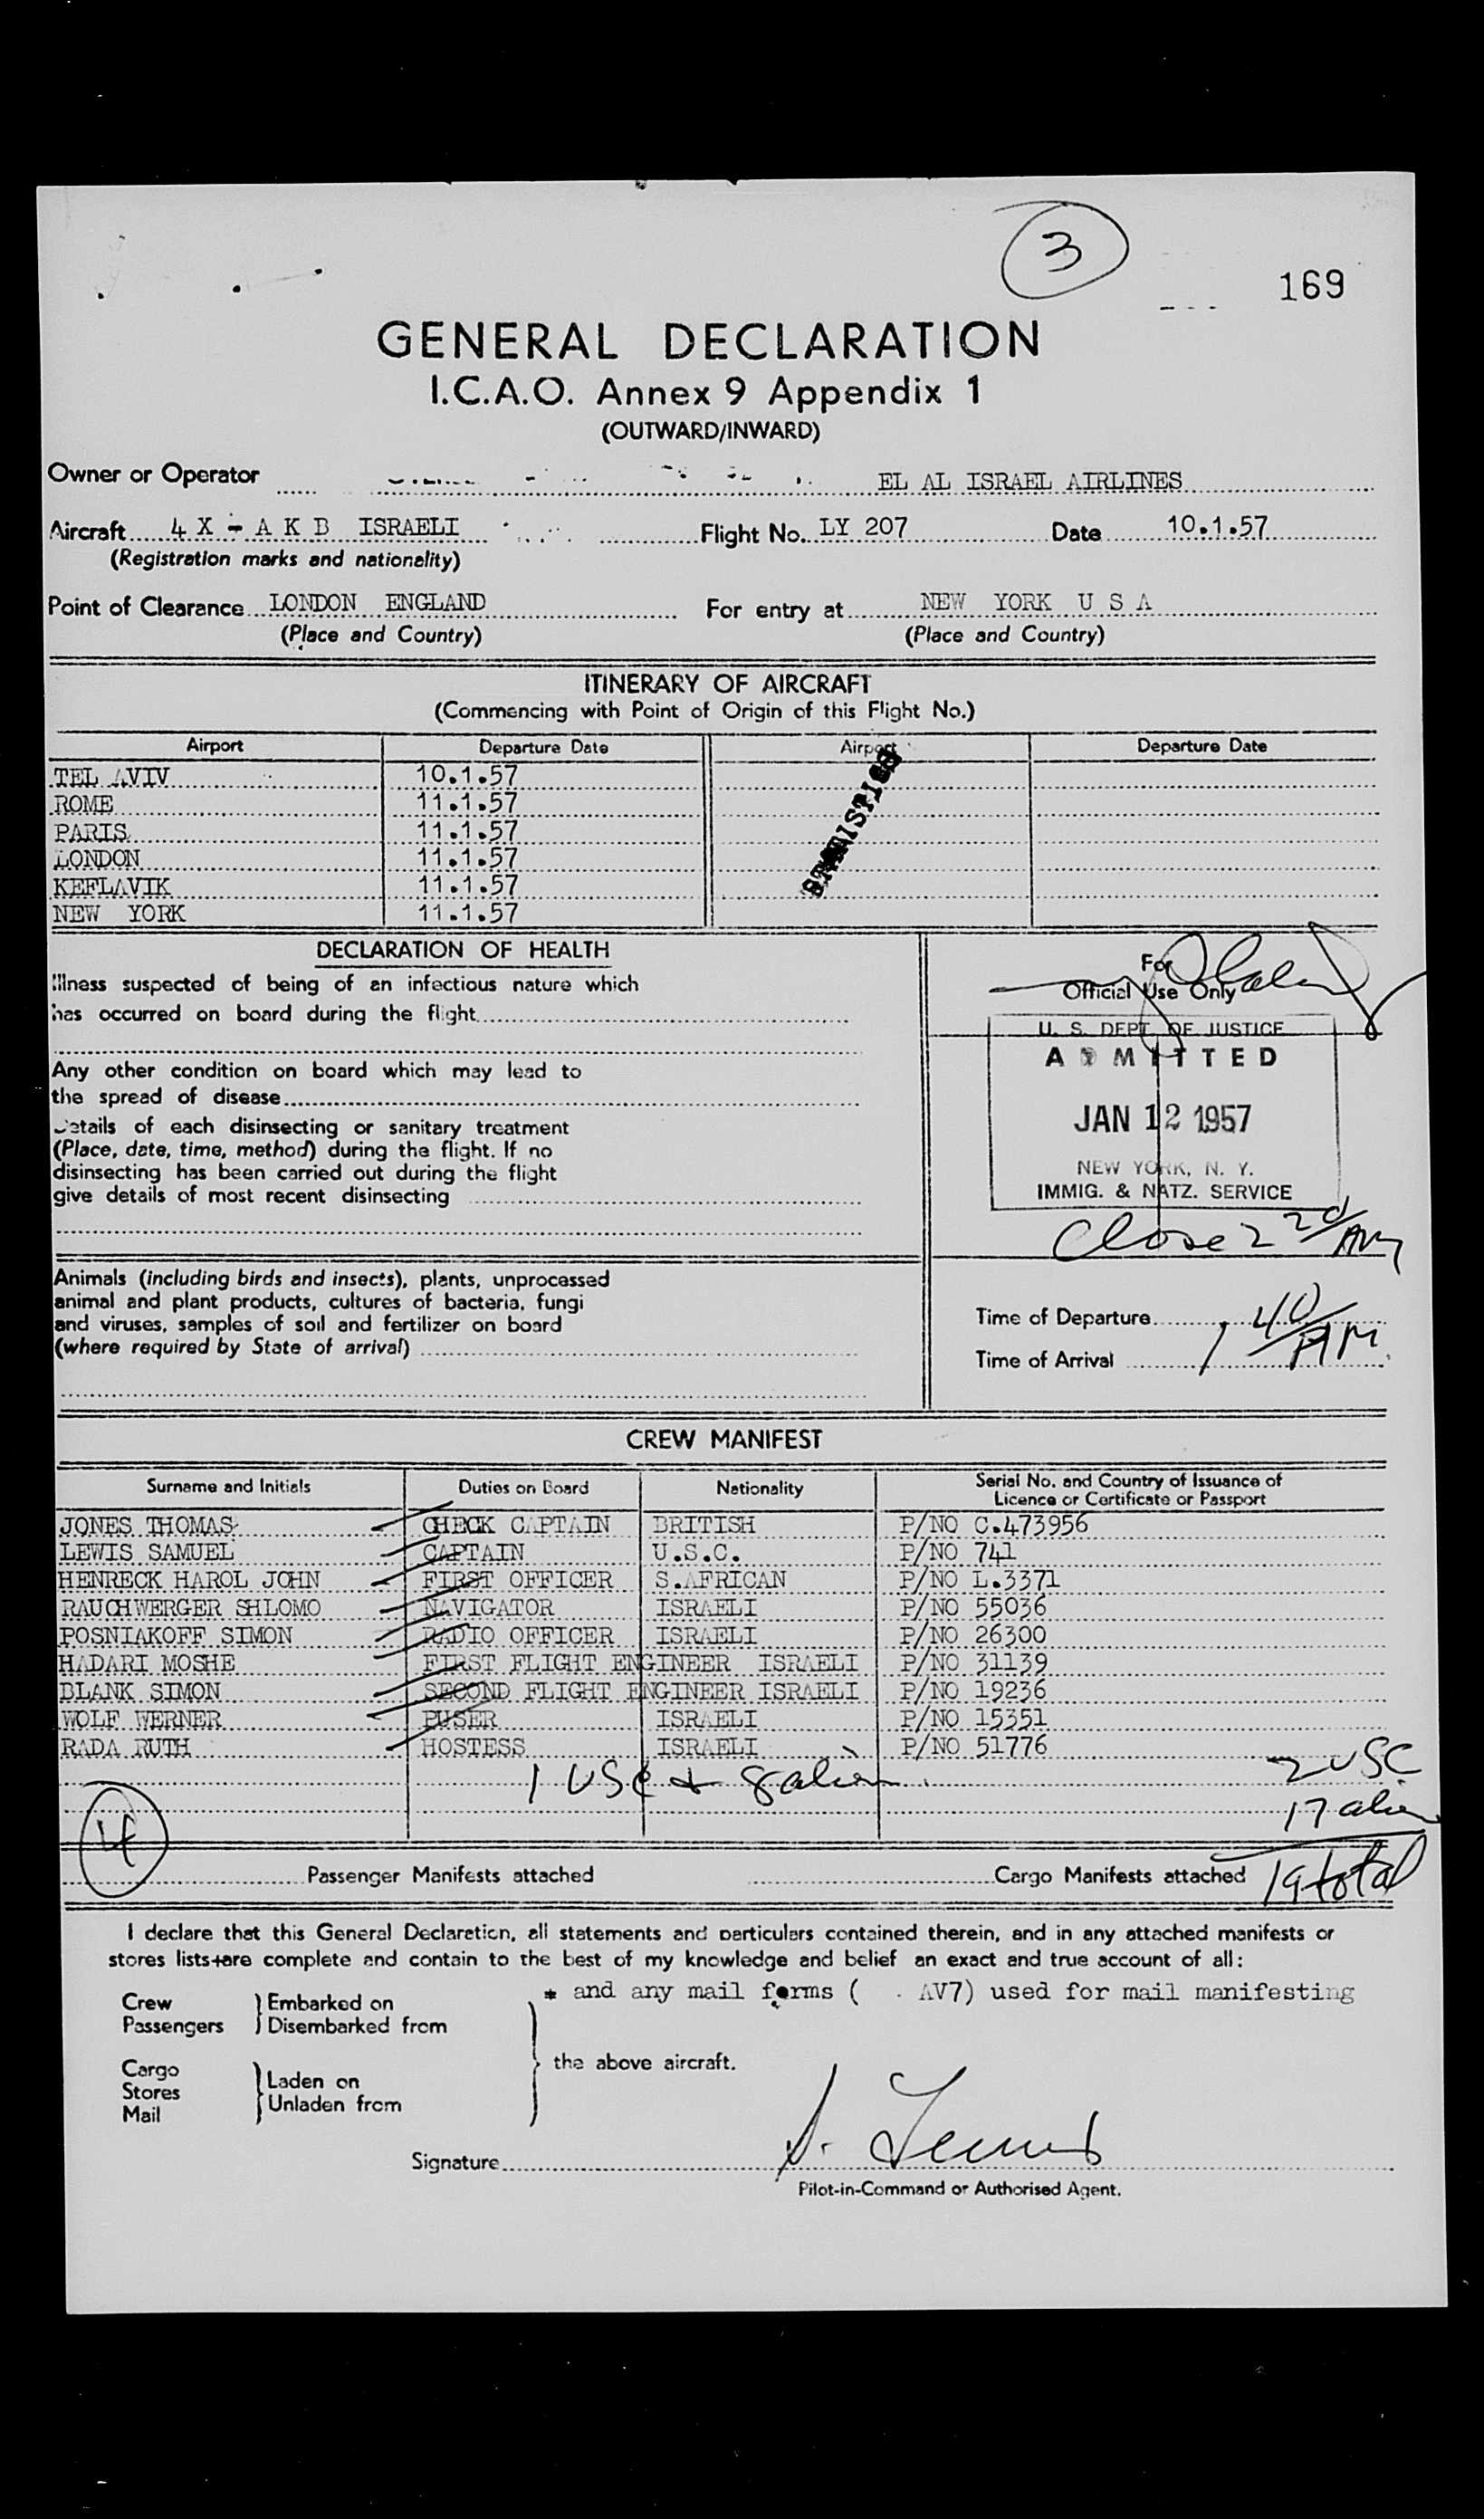 3
169
GENERAL DECLARATION
I.C.A.O. Annex 9 Appendix 1
(OUTWARD/INWARD)
Owner or Operator EL AL ISRAEL AIRLINES
Aircraft 4 X - A K B ISRAELI Flight No. LY 207 Date 10.1.57
(Registration marks and nationality)
Point of Clearance LONDON ENGLAND For entry at NEW YORK U S A
(Place and Country) (Place and Country)
ITINERARY OF AIRCRAFT
(Commencing with Point of Origin of this Flight No.)
Airport Departure Date Airport Departure Date
TEL AVIV 10.1.57
ROME 11.1.57
PARIS 11.1.57
LONDON 11.1.57
KEFLAVIK 11.1.57
NEW YORK 11.1.57
STATISTICS
DECLARATION OF HEALTH
Illness suspected of being of an infectious nature which
has occurred on board during the flight
Any other condition on board which may lead to
the spread of disease
Details of each disinsecting or sanitary treatment
(Place, date, time, method) during the flight. If no
disinsecting has been carried out during the flight
give details of most recent disinsecting
For
Official Use Only
U. S. DEPT. OF JUSTICE
ADMITTED
JAN 12 1957
NEW YORK, N. Y.
IMMIG. & NATZ. SERVICE
Close 2 20/AM
Animals (including birds and insects), plants, unprocessed
animal and plant products, cultures of bacteria, fungi
and viruses, samples of soil and fertilizer on board
(where required by State of arrival)
Time of Departure
Time of Arrival 1 40/AM
CREW MANIFEST
Surname and Initials Duties on Board Nationality Serial No. and Country of Issuance of
Licence or Certificate or Passport
JONES THOMAS CHECK CAPTAIN BRITISH P/NO C.473956
LEWIS SAMUEL CAPTAIN U.S.C. P/NO 741
HENRECK HAROL JOHN FIRST OFFICER S.AFRICAN P/NO L.3371
RAUCHWERGER SHLOMO NAVIGATOR ISRAELI P/NO 55036
POSNIAKOFF SIMON RADIO OFFICER ISRAELI P/NO 26300
HADARI MOSHE FIRST FLIGHT ENGINEER ISRAELI P/NO 31139
BLANK SIMON SECOND FLIGHT ENGINEER ISRAELI P/NO 19236
WOLF WERNER PUSER ISRAELI P/NO 15351
RADA RUTH HOSTESS ISRAELI P/NO 51776
1 USC + 8 alien 2 USC
17 alien
4 Passenger Manifests attached Cargo Manifests attached 19 total
I declare that this General Declaration, all statements and particulars contained therein, and in any attached manifests or
stores lists+are complete and contain to the best of my knowledge and belief an exact and true account of all:
* and any mail forms ( . AV7) used for mail manifesting
Crew Embarked on
Passengers Disembarked from
the above aircraft.
Cargo
Stores Laden on
Mail Unladen from
Signature S. Lewis
Pilot-in-Command or Authorised Agent.